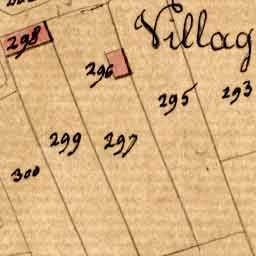 Villag
298
296
295
293
299
297
300